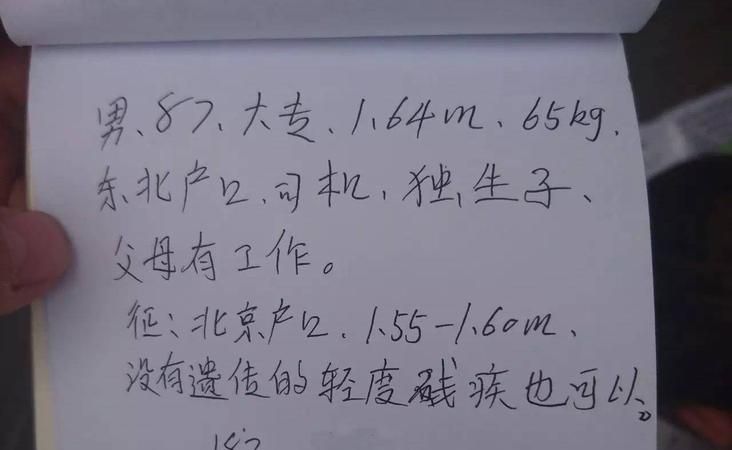 男、87、大专、1.64m、65kg,
东北户口、司机、独生子、
父母有工作。
征：北京户口、1.55-1.60m、
没有遗传的轻度残疾也可以。